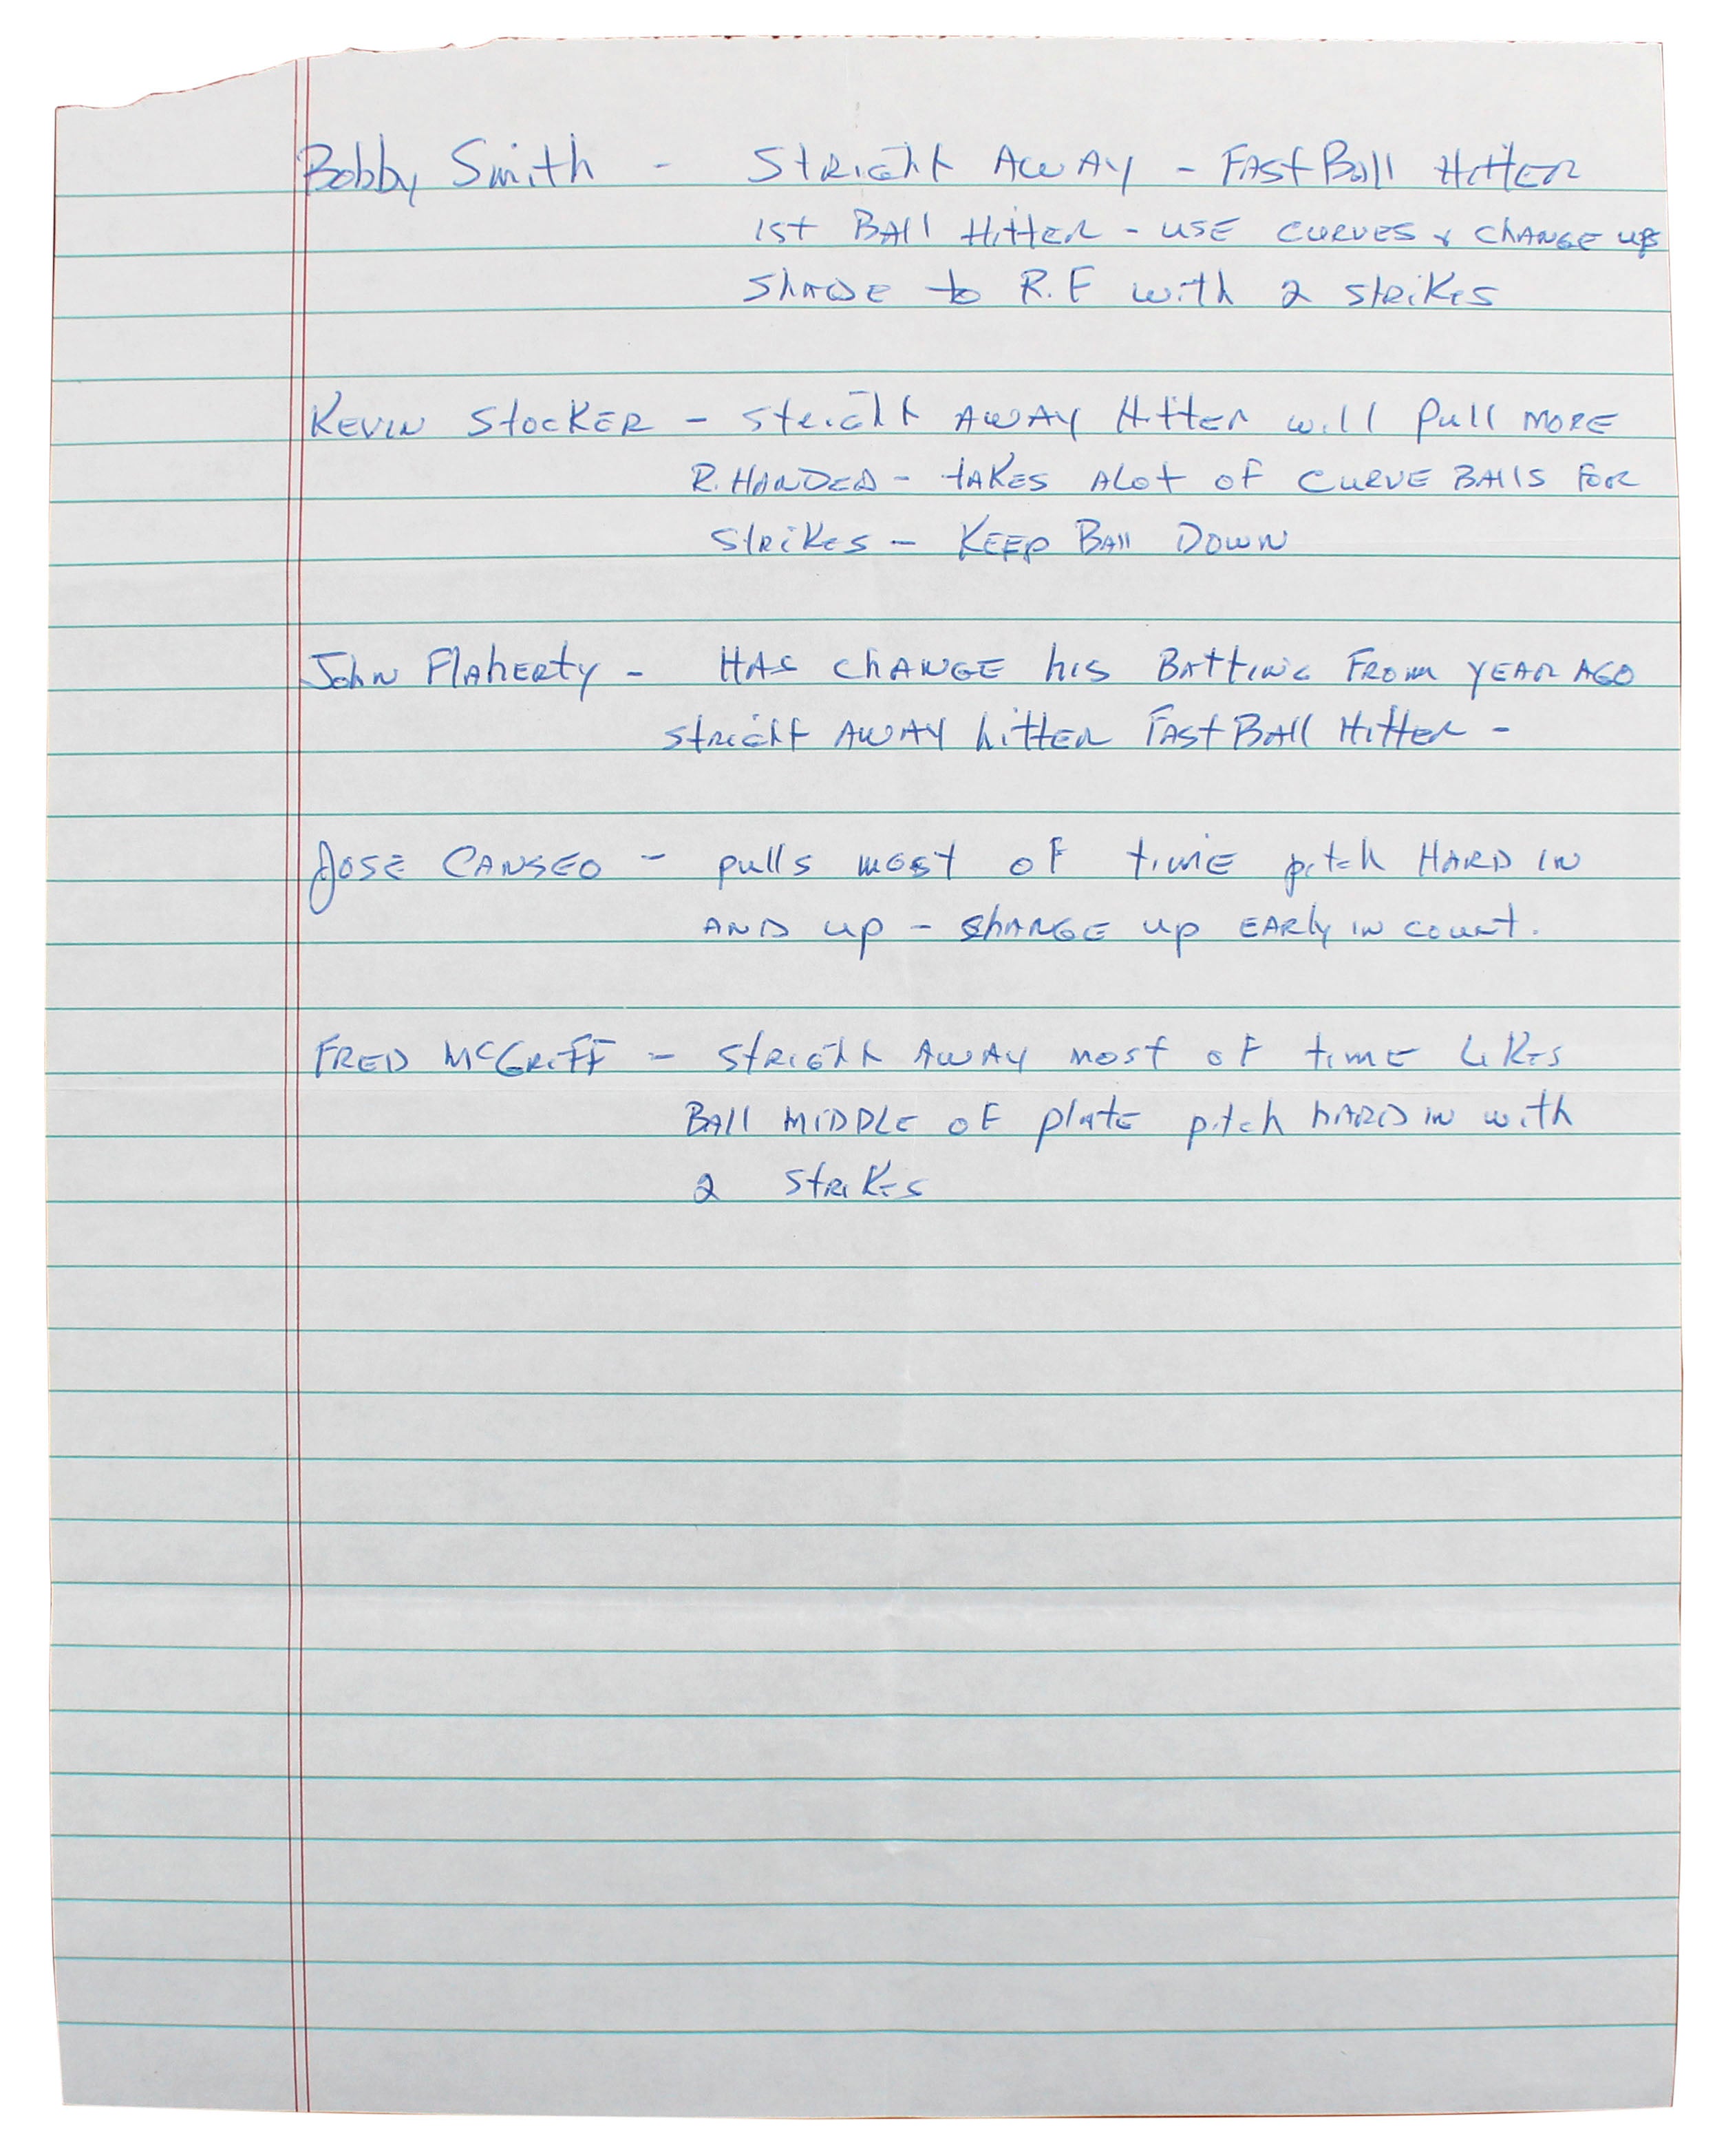 Bobby Smith - Stright Away - Fast Ball Hitter
1st Ball Hitter - use curves & change ups
Shade to R.F with 2 strikes
Kevin Stocker - Stright Away Hitter will pull more
R. Handed - takes alot of curve balls for
strikes - Keep Ball Down
John Flaherty - Has change his Batting From year ago
stright away hitter Fast Ball Hitter -
Jose Canseo - pulls most of time pitch Hard in
and up - change up early in count.
Fred McGriff - stright away most of time likes
Ball middle of plate pitch hard in with
2 strikes